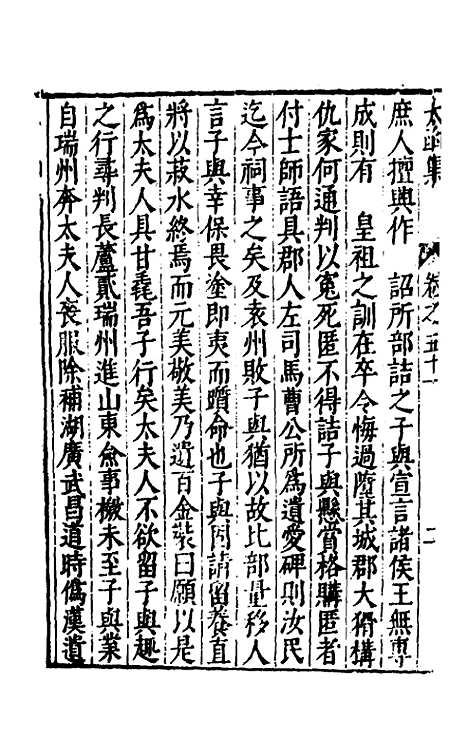 太函集 卷之五十一 二
庶人擅興作 詔所部詰之子與宣言諸侯王無專
成則有 皇祖之訓在卒令悔過隳其城郡大猾構
仇家何通判以冤死匿不得詰子與懸賞格購匿者
付士師語具郡人左司馬曹公所為遺愛碑則汝民
迄今祠事之矣及袁州敗子與猶以故比部量移人
言子與幸保畏塗即夷而躓命也子與因請留養直
將以菽水終焉而元美敬美乃遺百金裝曰願以是
為太夫人具甘毳吾子行矣太夫人不欲留子與趣
之行尋判長蘆貳瑞州進山東僉事檄未至子與業
自瑞州奔太夫人喪服除補湖廣武昌道時偽漢遺